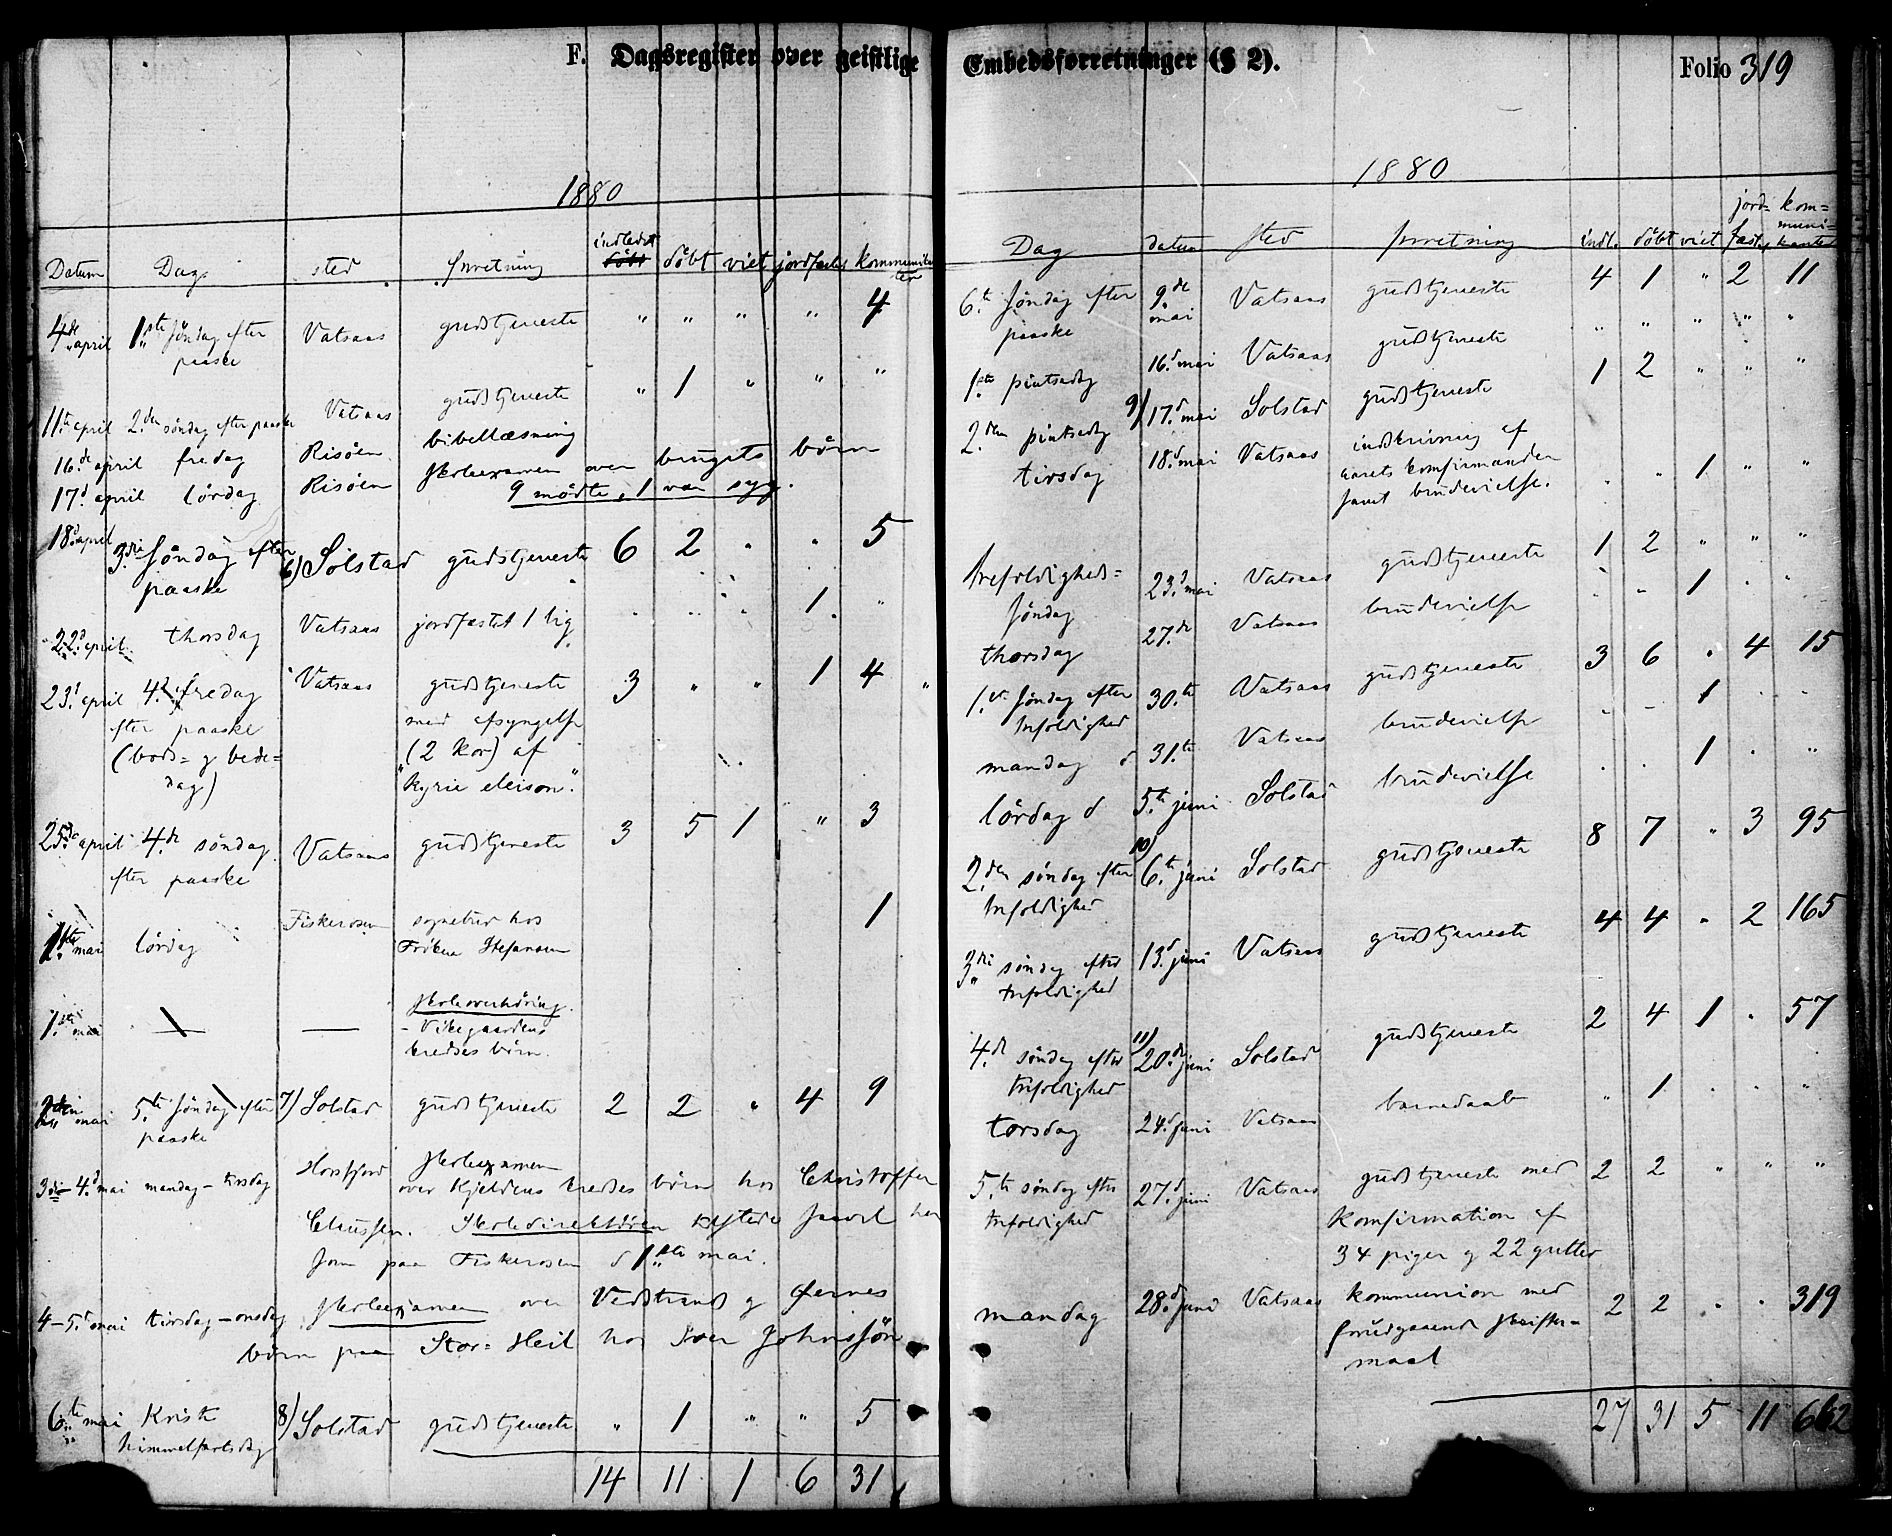 F. Dagsregister over geistlige
1880
Datum Dag sted forretning indledet døbt døbt viet jordfæstet kommunikanter
4de april 1ste søndag efter paaske Vatsaas gudstjeneste " " " " 4
11te april 2den søndag efter paaske Vatsaas gudstjeneste " 1 " " "
16de april fredag Risøen bibellæsning
17d april lørdag Risøen skoleexamen over brugets børn
9 mødte, 1 var syg.
18d april 3die søndag efter paaske 6) Solstad gudstjeneste 6 2 " " 5
22d april thorsdag Vatsaas jordfæstet 1 lig " " " 1 "
23d april 4de fredag Vatsaas gudstjeneste 3 " " 1 4
efter paaske med afsyngelse
(bods= g bede= (2 kor) af
dag) "kyrie eleison".
25de april 4de søndag Vatsaas gudstjeneste 3 5 1 " 3
efter paaske
1ste mai lørdag Fiskerosen sognebud hos 1
Frøken Stefansen
1ste mai — — skoleoverhøring
- Vikegaardens
kredses børn.
2den mai 5te søndag efter 7) Solstad gudstjeneste 2 2 " 4 9
paaske
3die-4d mai mandag-tirsdag Horsfjord skoleexamen
over Kjeldens kredses børn hos Christoffer
Claussen. Skoledirektøren saavel her
som paa Fiskerosen d 1ste mai.
4-5d mai tirsdag-onsdag skoleexamen over Vedstrands g Ørnes
børn paa Stor=Heil hos Iver Johnssøn
6te mai Kristi 8) Solstad gudstjeneste " 1 " " 5
himmelfartsdag
14 11 1 6 31
Embedsforretninger (§ 2).
Folio 319
1880
Dag datum sted forretning indl. døbt viet jord=fæstet kom=muni=kanter
6te søndag efter 9de mai Vatsaas gudstjeneste 4 1 " 2 11
paaske
1ste pintsedag 16d mai Vatsaas gudstjeneste " " " " "
2den pintsedag 9) 17d mai Solstad gudstjeneste 1 2 " " "
tirsdag 18d mai Vatsaas indskrivning af
aarets konfirmander
samt brudevielse. " " 1 " "
Trefoldigheds= 23d mai Vatsaas gudstjeneste 1 2 " " "
søndag
thorsdag 27de Vatsaas brudevielse " " 1 " "
1ste søndag efter 30te Vatsaas gudstjeneste 3 6 " 4 15
trefoldighed
mandag d 31te Vatsaas brudevielse " " 1 " "
lørdag d 5te juni Solstad brudevielse " " 1 " "
2den søndag efter 10) 6te juni Solstad gudstjeneste 8 7 " 3 95
trefoldighed
3die søndag efter 13d juni Vatsaas gudstjeneste 4 4 " 2 165
trefoldighed
4de søndag efter 11) 20de juni Solstad gudstjeneste 2 4 1 " 57
trefoldighed
torsdag 24d juni Vatsaas barnedaab " 1 " " "
5te søndag efter 27d juni Vatsaas gudstjeneste med 2 2 " " "
trefoldighed konfirmation af
34 piger g 22 gutter
mandag 28d juni Vatsaas kommunion med 2 2 " " 319
forudgaaende skrifte=
maal
27 31 5 11 662